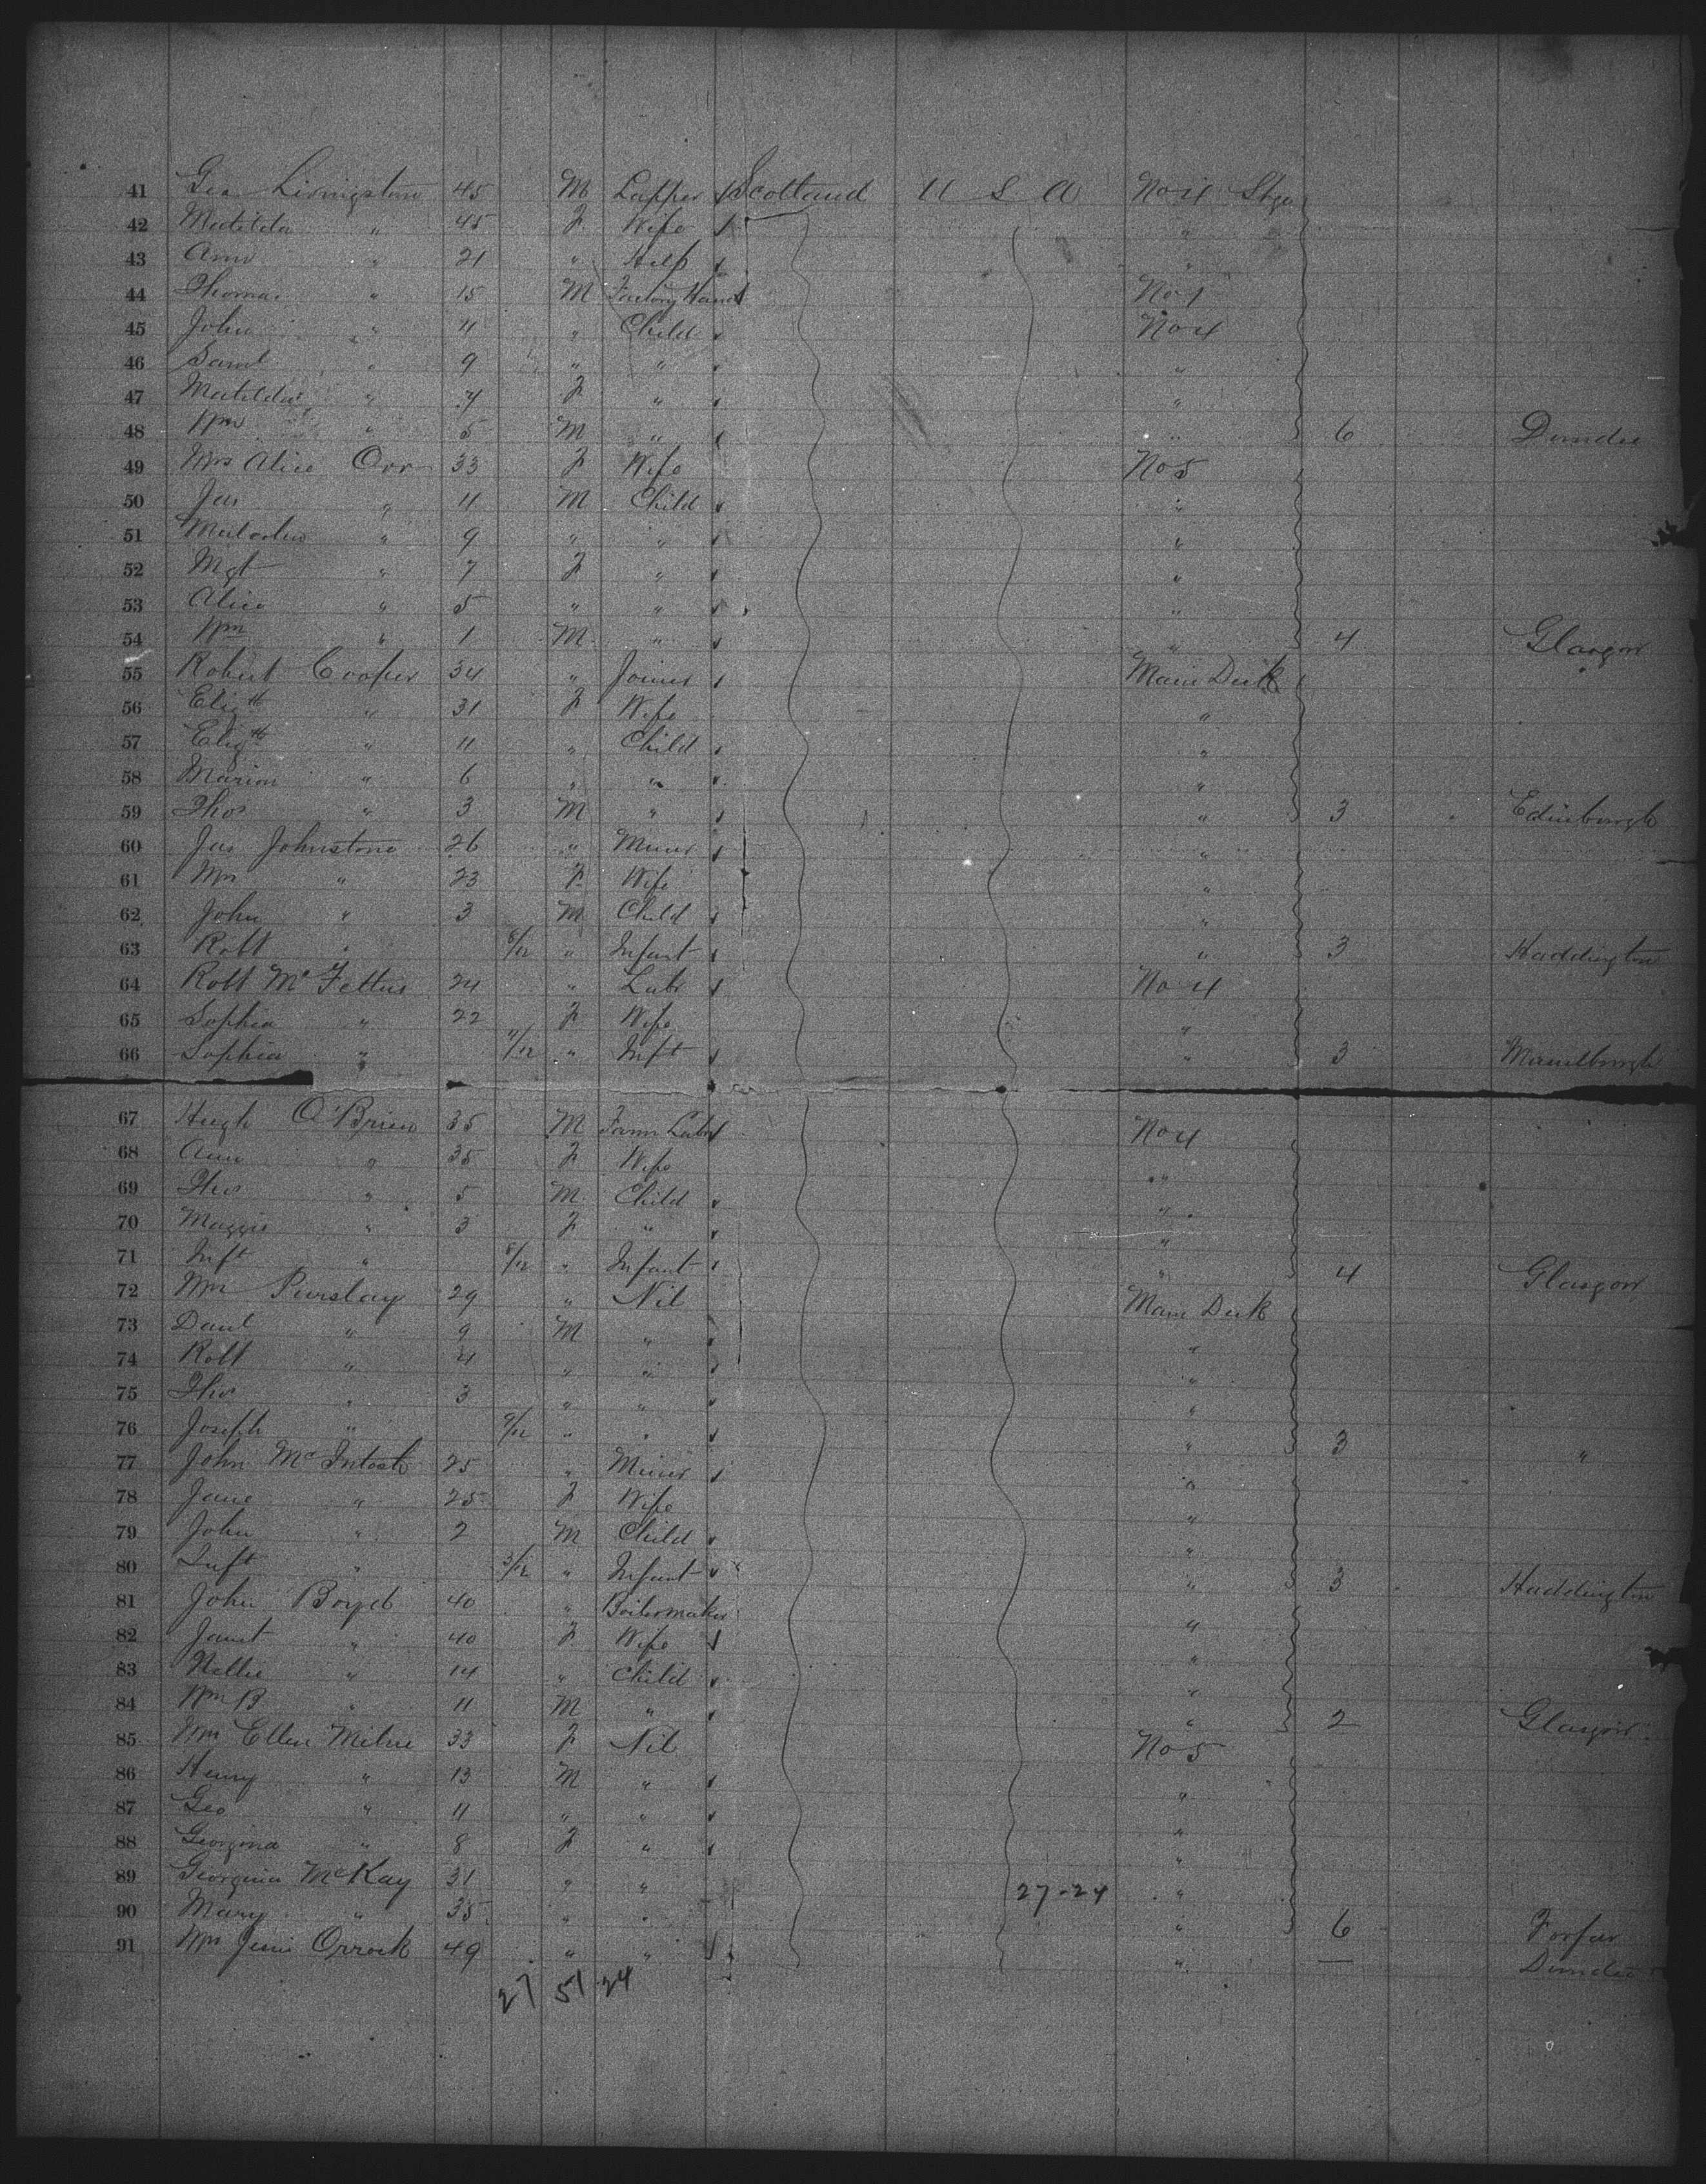 41 Geo Livingston 45 M Lapper Scotland U S A No 4 Stge
42 Matilda " 45 F Wife "
43 Ann " 21 " Help "
44 Thomas " 15 M Factory Hand No 1
45 John " 11 " Child No 4
46 Saml " 9 " " "
47 Matilda " 7 F " "
48 Wm " 5 M " " 6 Dundee
49 Mrs Alice Orr 33 F Wife No 5
50 Jas " 11 M Child "
51 Malcolm " 9 " " "
52 Mgt " 7 F " "
53 Alice " 5 " " "
54 Wm " 1 M " " 4 Glasgow
55 Robert Cooper 34 " Joiner Main Deck
56 Elizth " 31 F Wife "
57 Elizth " 11 " Child "
58 Marion " 6 " " "
59 Thos " 3 M " " 3 Edinburgh
60 Jas Johnstone 26 " Miner "
61 Mrs " 23 F Wife "
62 John " 3 M Child "
63 Robt " 8/12 " Infant " 3 Haddington
64 Robt McFettus 24 " Labr No 4
65 Sophia " 22 F Wife "
66 Sophia " 11/12 " Inft " 3
67 Hugh O'Brien 35 M Farm Labr No 4
68 Ann " 35 F Wife "
69 Thos " 5 M Child "
70 Maggie " 3 F " "
71 Inft " 8/12 " Infant " 4 Glasgow
72 Mrs Purslay 29 " Nil Main Deck
73 Danl " 9 M " "
74 Robt " 4 " " "
75 Thos " 3 " " "
76 Joseph " 9/12 " " " 3 "
77 John McIntosh 25 " Miner "
78 Jane " 25 F Wife "
79 John " 2 M Child "
80 Inft " 3/12 " Infant " 3 Haddington
81 John Boyd 40 " Boilermaker "
82 Janet " 40 F Wife "
83 Nellie " 14 " Child "
84 Wm B " 11 M " " 2 Glasgow
85 Mrs Ellen Milne 33 F Nil No 5
86 Henry " 13 M " "
87 Geo " 11 " " "
88 Georgina " 8 F " "
89 Georgina McKay 31 " " 27-24 "
90 Mary " 35 " " " 6 Forfar
91 Mrs Jessie Orrock 49 " " " — Dundee
27 51 24